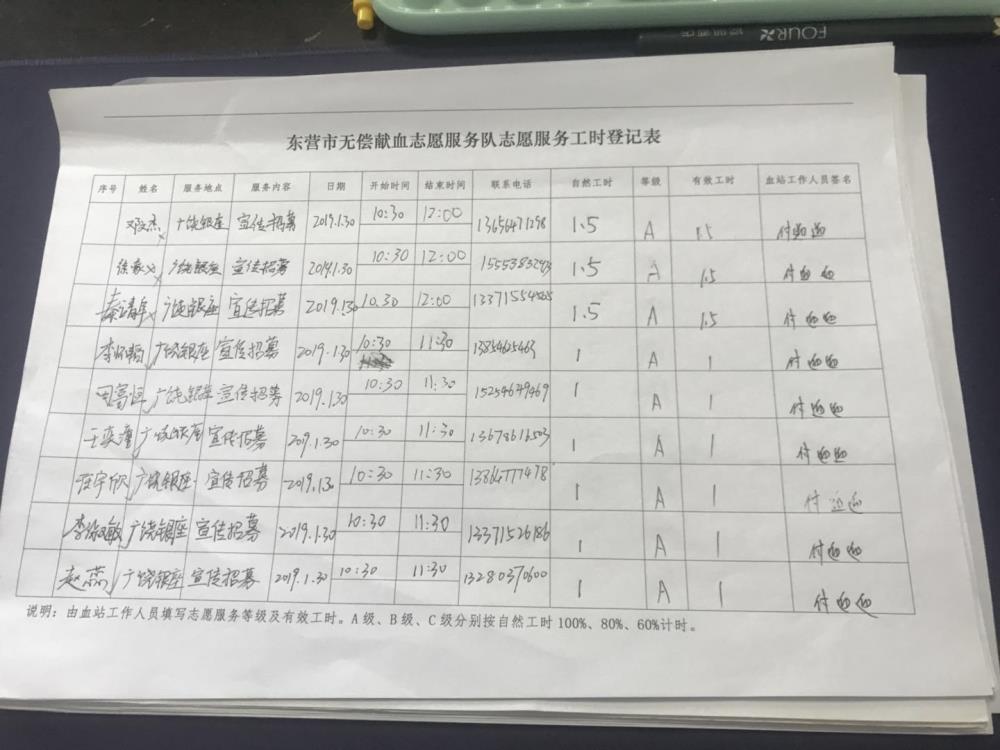 FOUR
东营市无偿献血志愿服务队志愿服务工时登记表
序号 姓名 服务地点 服务内容 日期 开始时间 结束时间 联系电话 自然工时 等级 有效工时 血站工作人员签名
广饶银座 宣传招募 2019.1.30 10:30 12:00 13656471298 1.5 A 1.5
广饶银座 宣传招募 2019.1.30 10:30 12:00 1.5 A 1.5
秦清华 广饶银座 宣传招募 2019.1.30 10.30 12:00 1.5 A 1.5
广饶银座 宣传招募 2019.1.30 10:30 11:30 1 A 1
广饶银座 宣传招募 2019.1.30 10:30 11:30 15254679469 1 A 1
广饶银座 宣传招募 2019.1.30 10:30 11:30 13678616503 1 A 1
广饶银座 宣传招募 2019.1.30 10:30 11:30 13864777478 1 A 1
李淑敏 广饶银座 宣传招募 2019.1.30 10:30 11:30 13371526186 1 A 1
赵蕊 广饶银座 宣传招募 2019.1.30 10:30 11:30 13280370600 1 A 1
说明：由血站工作人员填写志愿服务等级及有效工时。A级、B级、C级分别按自然工时100%、80%、60%计时。